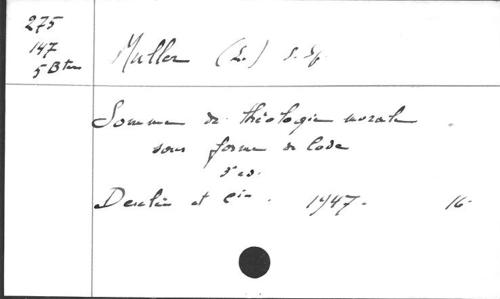 275
147
5 Bten
Muller (L.) s. sp.
Somme de théologie morale
sous forme de Code
3e ed.
Desclée et Cie. 1947. 16